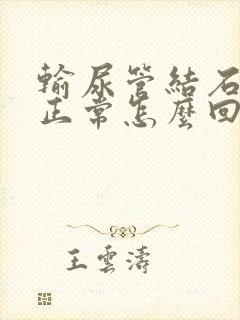 輸尿管結石
正常怎麼回
王雲濤